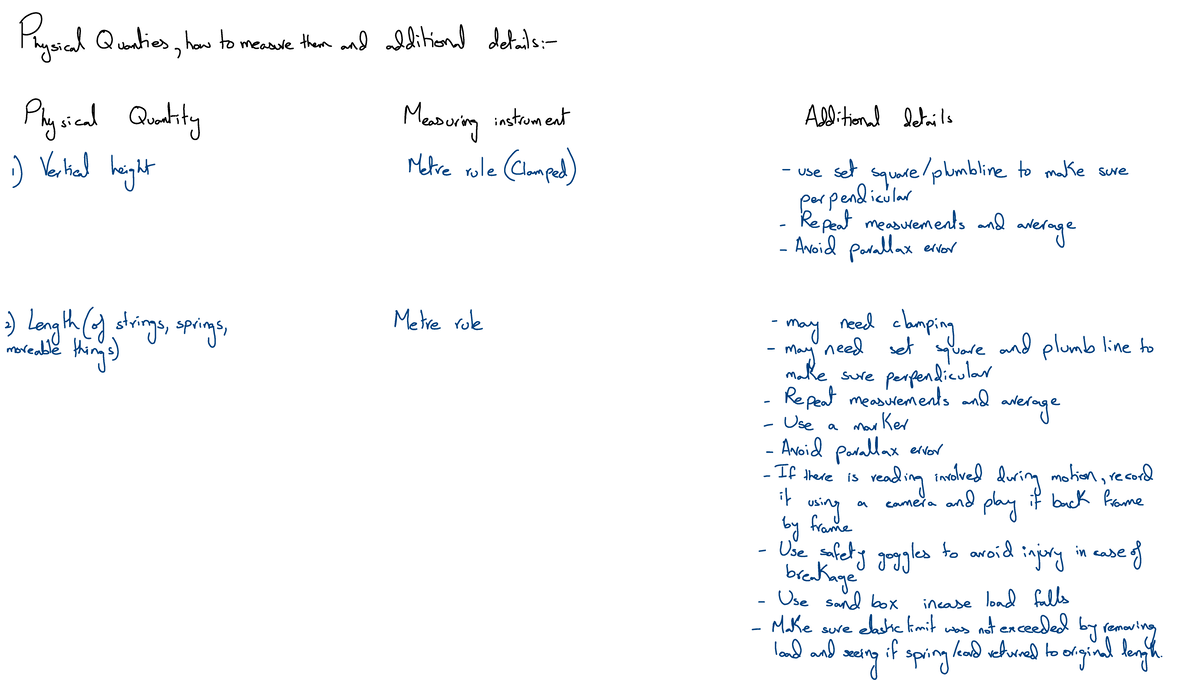 Physical Quanties, how to measure them and additional details:-
Physical Quantity
Measuring instrument
Additional details
1) Vertical height
Metre rule (Clamped)
- use set square/plumbline to make sure
perpendicular
- Repeat measurements and average
- Avoid parallax error
2) Length (of strings, springs,
moveable things)
Metre rule
- may need clamping
- may need set square and plumb line to
make sure perpendicular
- Repeat measurements and average
- Use a marker
- Avoid parallax error
- If there is reading involved during motion, record
it using a camera and play it back frame
by frame
- Use safety goggles to avoid injury in case of
breakage
- Use sand box incase load falls
- Make sure elastic limit was not exceeded by removing
load and seeing if spring/cord returned to original length.